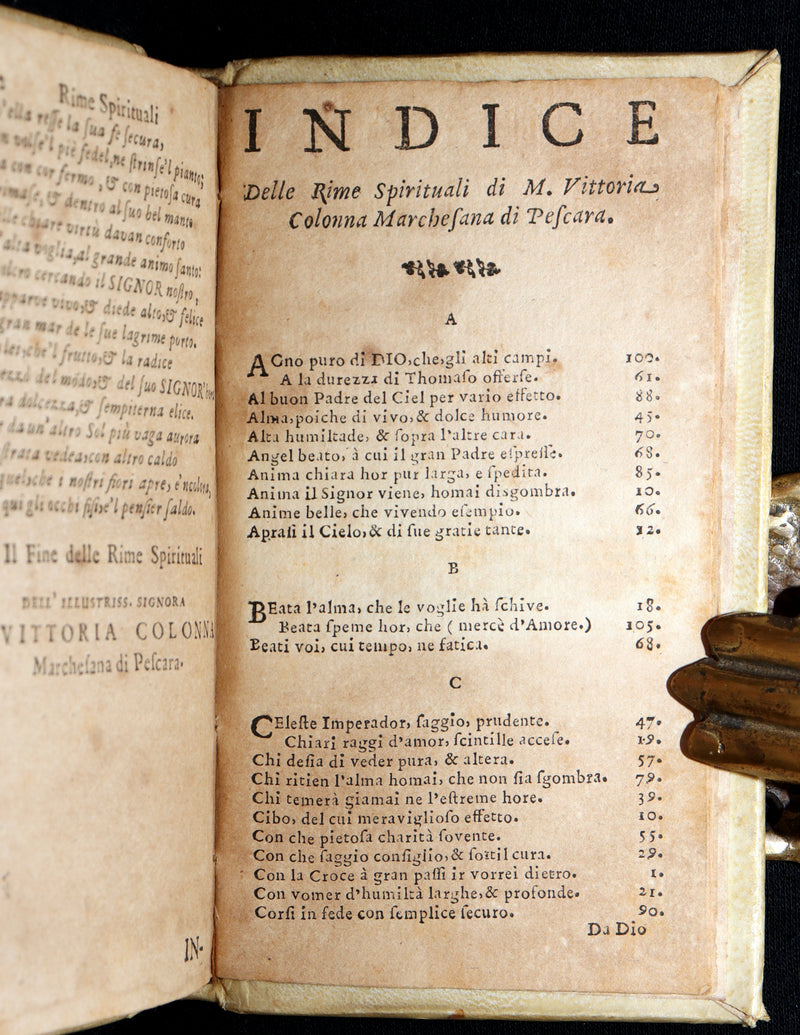 Rime Spirituali
la sua fe secura,
fedel, ne strinse'l pianto;
con cor fermo, & con pietosa cura
& dentro al suo bel manto
virtù davan conforto
voglia, al grande animo santo:
cercando il SIGNOR nostro,
vivo, & diede alto, & felice
gran mar de le sue lagrime porto.
frutto, & la radice
del modo, & del suo SIGNOR
dolcezza, & sempiterna elice.
da un'altro Sol più vaga aurora
con altro caldo
i nostri fiori apre, e'ncolora,
gli occhi fissi, e'l pensier saldo.
Il Fine delle Rime Spirituali
DELL' ILLUSTRISS. SIGNORA
VITTORIA COLONNA
Marchesana di Pescara.
IN-
INDICE
Delle Rime Spirituali di M. Vittoria
Colonna Marchesana di Pescara.
A
AGno puro di DIO, che, gli alti campi. 100.
A la durezza di Thomaso offerse. 61.
Al buon Padre del Ciel per vario effetto. 88.
Alma, poiche di vivo, & dolce humore. 45.
Alta humiltade, & sopra l'altre cara. 70.
Angel beato, à cui il gran Padre espresse. 68.
Anima chiara hor pur larga, e spedita. 85.
Anima il Signor viene, homai disgombra. 10.
Anime belle, che vivendo esempio. 66.
Aprasi il Cielo, & di sue gratie tante. 12.
B
BEata l'alma, che le voglie hà schive. 18.
Beata speme hor, che ( mercè d'Amore.) 105.
Beati voi, cui tempo, ne fatica. 68.
C
CEleste Imperador, saggio, prudente. 47.
Chiari raggi d'amor, scintille accese. 19.
Chi desia di veder pura, & altera. 57.
Chi ritien l'alma homai, che non sia sgombra. 79.
Chi temerà giamai ne l'estreme hore. 39.
Cibo, del cui meraviglioso effetto. 10.
Con che pietosa charità sovente. 55.
Con che saggio consiglio, & sottil cura. 29.
Con la Croce à gran passi ir vorrei dietro. 1.
Con vomer d'humiltà larghe, & profonde. 21.
Corsi in fede con semplice securo. 90.
Da Dio